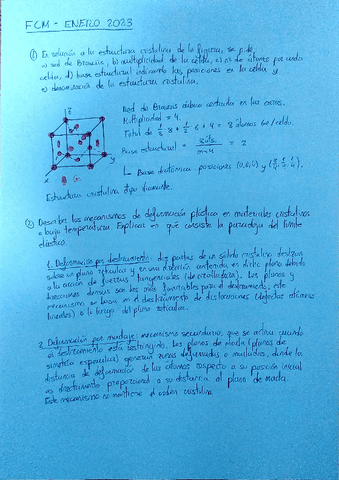 FCM - ENERO 2023
① En relación a la estructura cristalina de la figura, se pide:
a) red de Bravais, b) multiplicidad de la celda, c) nº de átomos por cada
celda, d) base estructural indicando las posiciones en la celda y
e) denominación de la estructura cristalina.
Red de Bravais cúbica centrada en las caras.
Multiplicidad = 4.
Total de 1/8 · 8 + 1/2 · 6 + 4 = 8 átomos Ge/celda.
Base estructural = = 2
z
y
x
Ge
↳ Base diatómica posiciones (0,0,0) y (1/4, 1/4, 1/4).
Estructura cristalina tipo diamante.
② Describe los mecanismos de deformación plástica en materiales cristalinos
a bajas temperaturas. Explica en qué consiste la paradoja del límite
elástico.
1. Deformación por deslizamiento: dos partes de un sólido cristalino deslizan
sobre un plano reticular y en una dirección contenida en dicho plano debido
a la acción de fuerzas tangenciales (de cizalladura). Los planos y
direcciones densos son los más favorables para el deslizamiento, este
mecanismo se basa en el deslizamiento de dislocaciones (defectos atómicos
lineales) a lo largo del plano reticular.
2. Deformación por maclaje: mecanismo secundario, que se activa cuando
el deslizamiento está restringido. Los planos de macla (planos de
simetría especular) generan zonas deformadas o macladas, donde la
distancia de deformación de los átomos respecto a su posición inicial
es directamente proporcional a su distancia al plano de macla.
Este mecanismo no mantiene el orden cristalino.